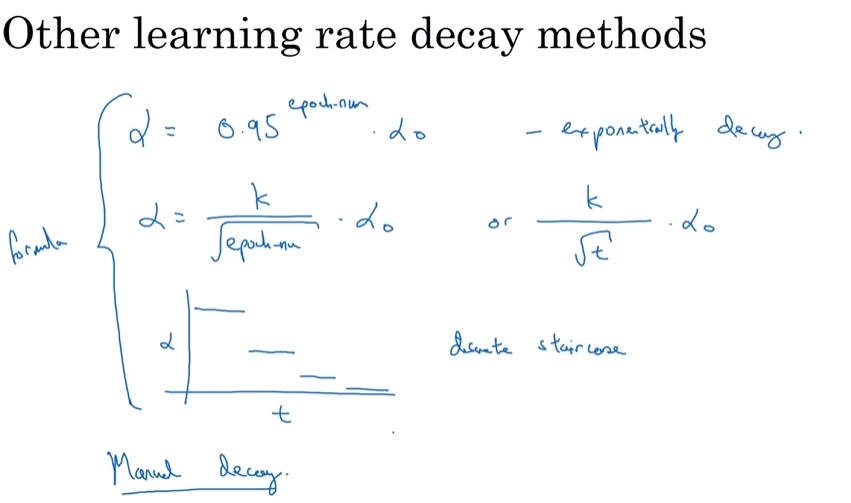 Other learning rate decay methods
α = 0.95^epoch-num · α₀ – exponentially decay.
formula
α = k/√epoch-num · α₀ or k/√t · α₀
α
discrete staircase
t
Manual decay.